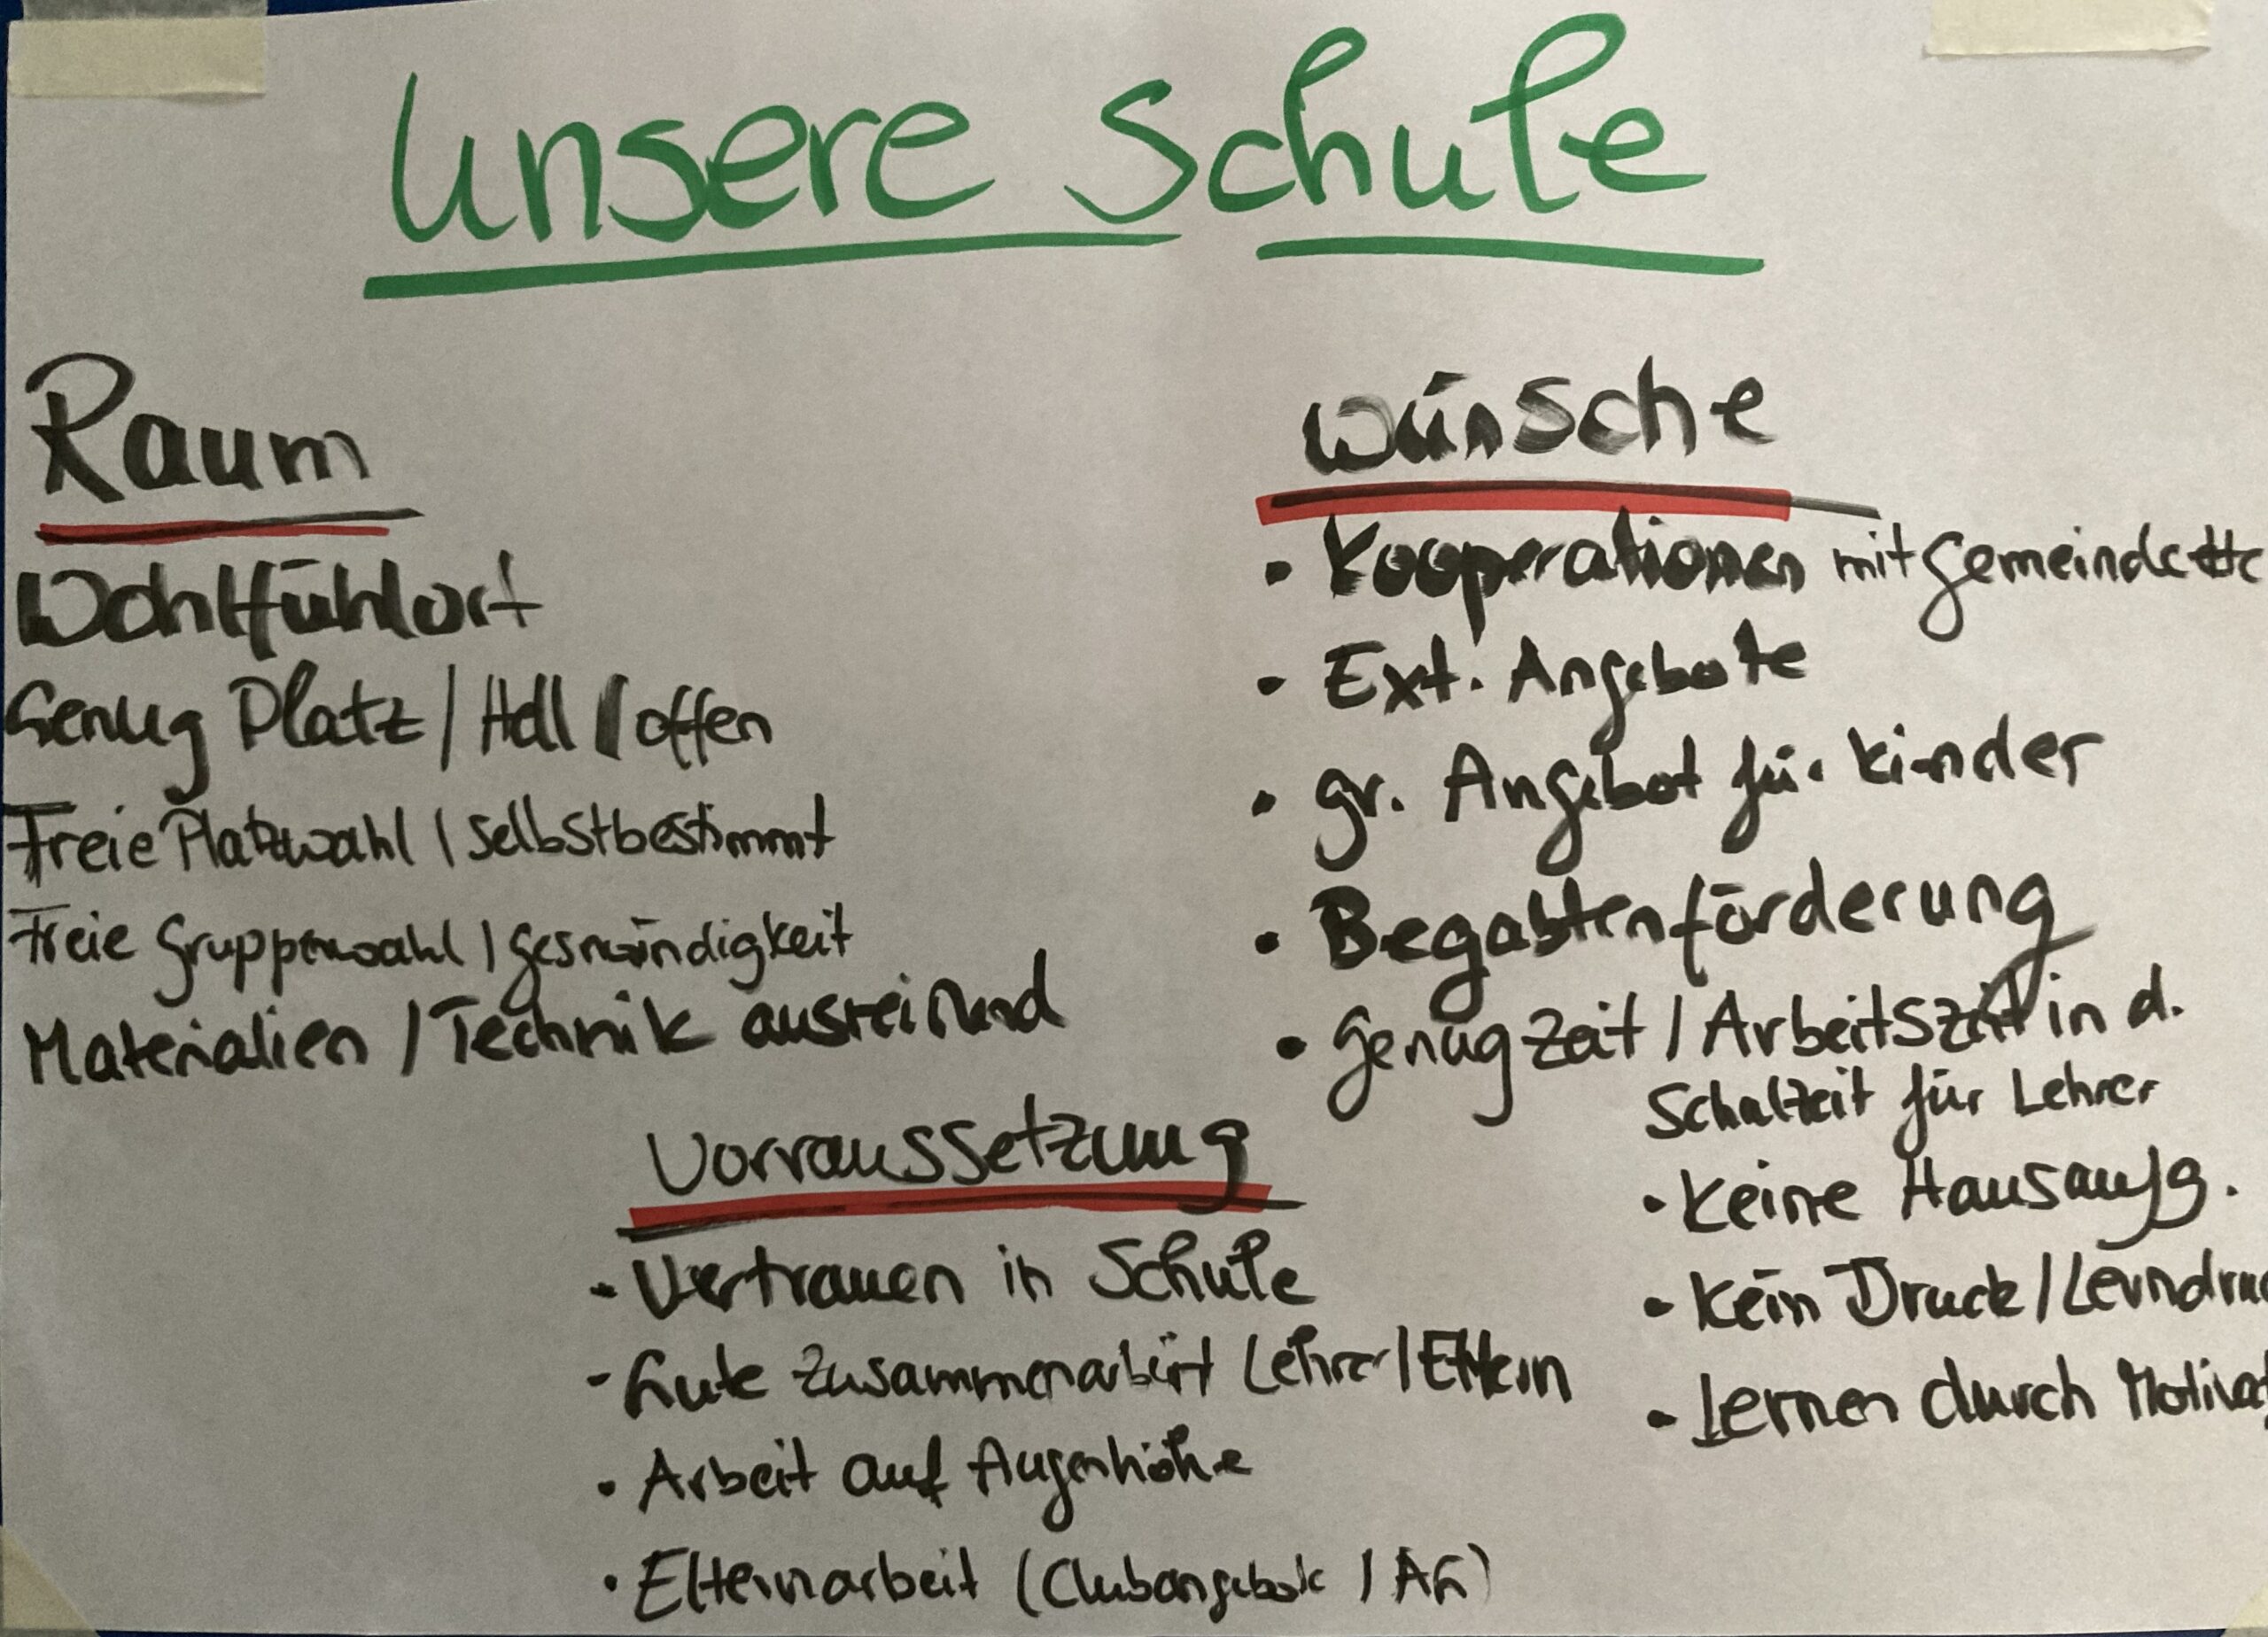 Unsere Schule
Raum
Wohlfühlort
Genug Platz / Hell / offen
Freie Platzwahl / selbstbestimmt
Freie Gruppenwahl /
Materialien / Technik ausreichend
Wünsche
• Kooperationen mit Gemeinde etc
• Ext. Angebote
• gr. Angebot für Kinder
• Begabtenförderung
• Genug Zeit / Arbeitszeit in d.
Schulzeit für Lehrer
• Keine Hausaufg.
• Kein Druck / Lerndruc
• Lernen durch Motivat
Vorraussetzung
- Vertrauen in Schule
- Gute Zusammenarbeit Lehrer / Eltern
• Arbeit auf Augenhöhe
• Elternarbeit (Clubangebote / AG)